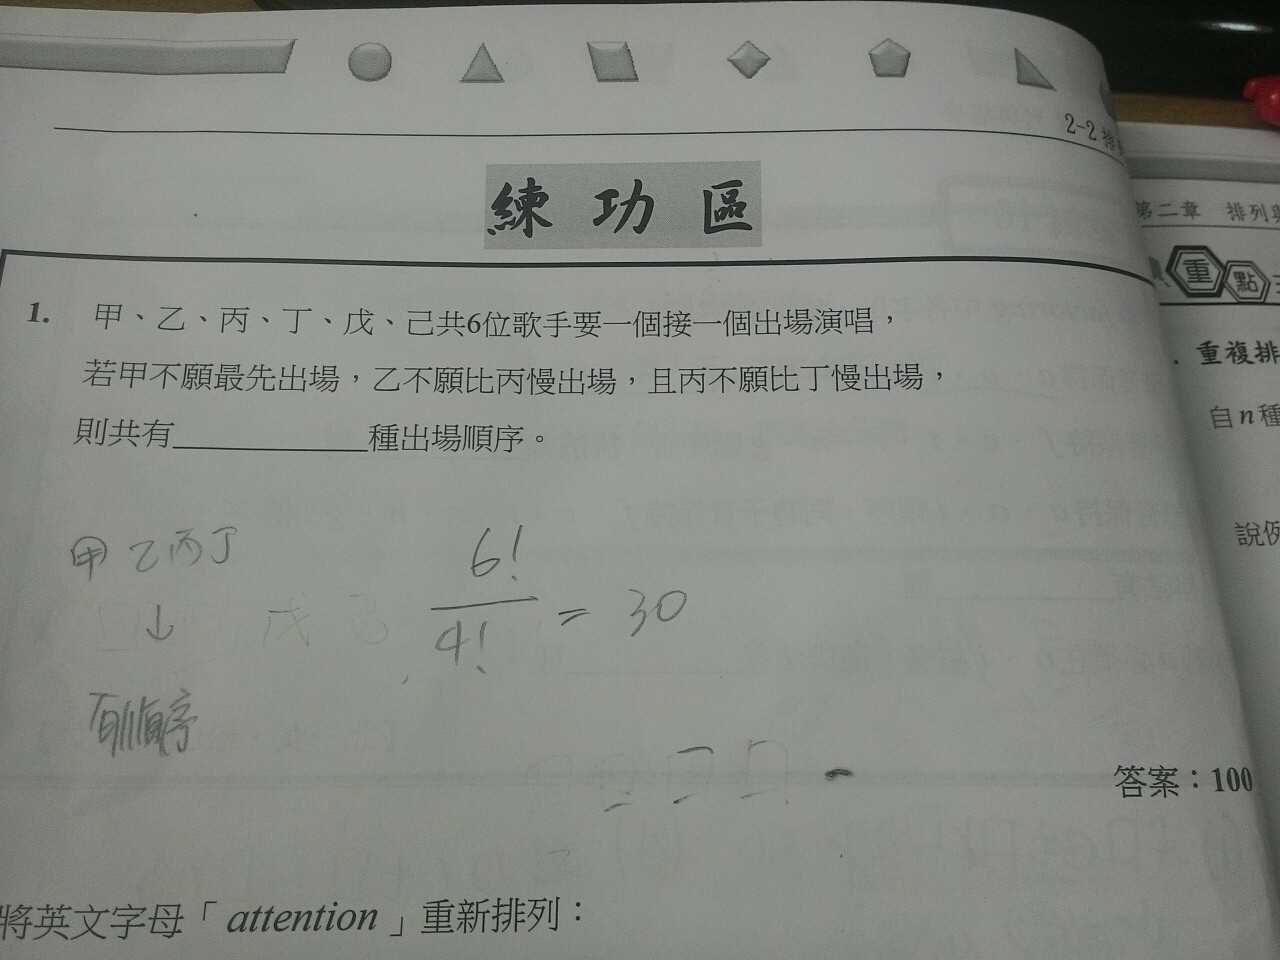 2-2 排
練功區
1. 甲、乙、丙、丁、戊、己共6位歌手要一個接一個出場演唱，
若甲不願最先出場，乙不願比丙慢出場，且丙不願比丁慢出場，
則共有＿＿＿＿＿＿種出場順序。
甲乙丙丁
↓
有順序
戊 己
6!
4!
= 30
答案：100
將英文字母「attention」重新排列：
第二章 排列與
重點
重複排
自n種
說例